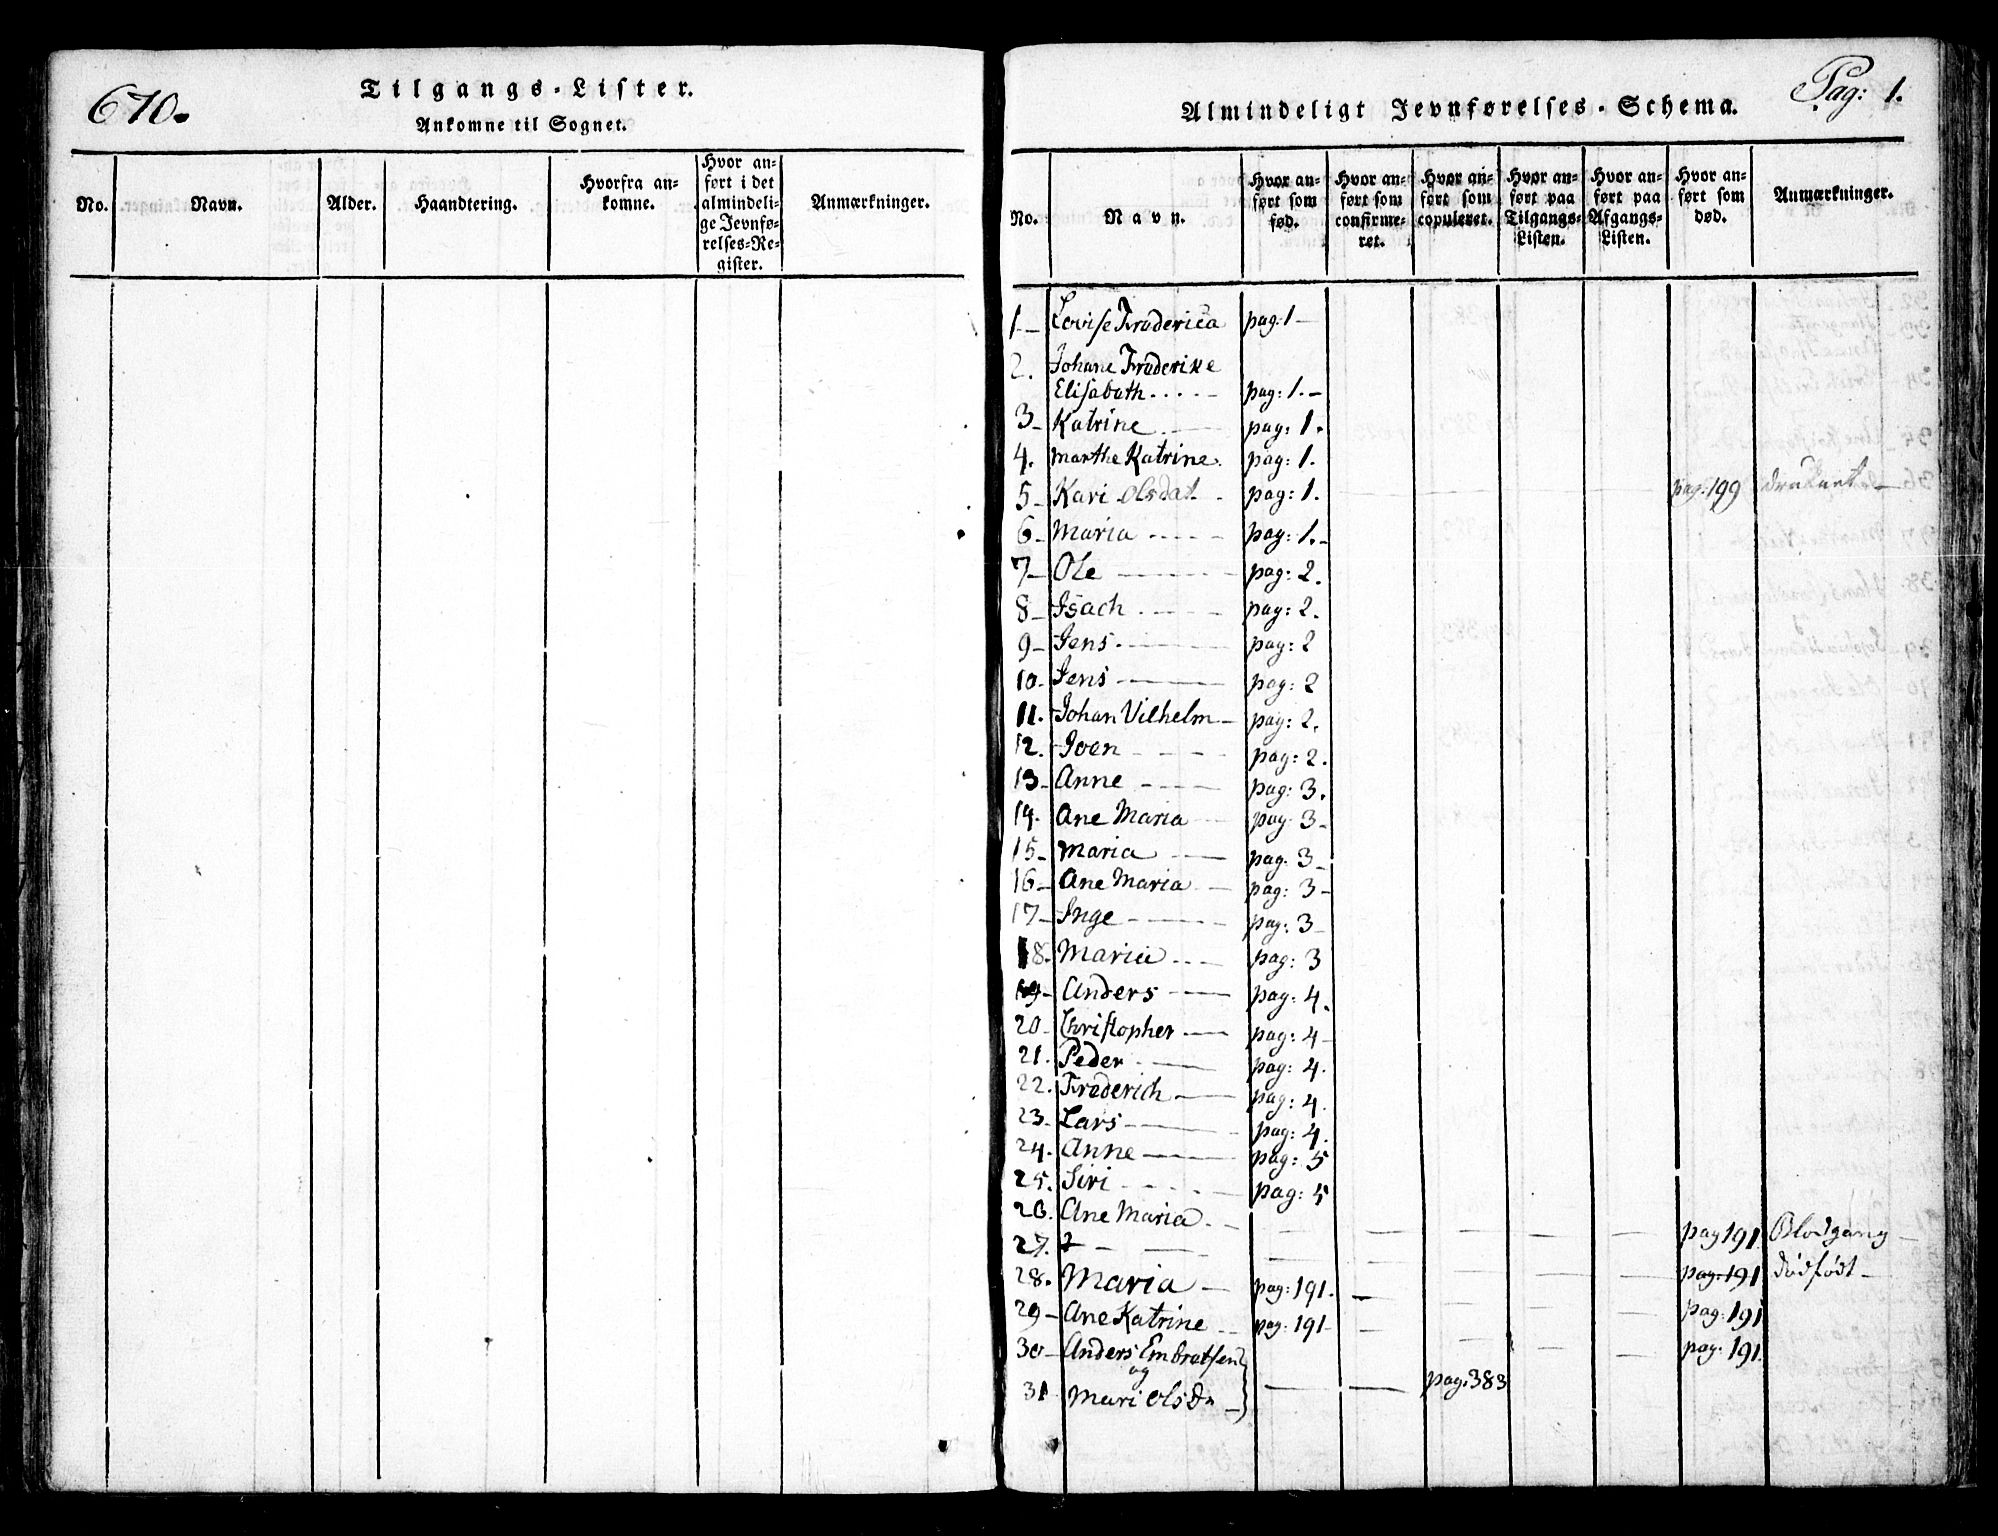 670.
Tilgangs-Lister.
Ankomne til Sognet.
No. Navn. Alder. Haandtering. Hvorfra ankomne. Hvor anført i det almindelige Jevnførelses-Register. Anmærkninger.
Pag: 1.
Almindeligt Jevnførelses-Schema.
No. Navn. Hvor anført som fød. Hvor anført som confirmeret. Hvor anført som copuleret. Hvor anført paa Tilgangs-Listen. Hvor anført paa Afgangs-Listen. Hvor anført som død. Anmærkninger.
1 Lovise Frederica pag: 1
2. Johane Frederike
Elisabath pag: 1.
3 Katrine pag: 1.
4. Marthe Katrine. pag: 1.
5 Kari Olsdat pag: 1. pag: 199 druknet
6 Maria pag: 1.
7 Ole pag: 2.
8 Isach pag: 2.
9 Jens pag: 2
10 Jens pag: 2
11. Johan Vilhelm pag: 2.
12. Joen pag: 2.
13 Anne pag: 3.
14. Ane Maria pag. 3
15 Maria pag. 3
16 Ane Maria pag: 3
17 Inge pag: 3
18. Maria pag: 3
19 Anders pag: 4.
20 Christopher pag: 4
21. Peder pag: 4.
22. Frederich pag: 4.
23 Lars pag: 4.
24. Anne pag: 5
25. Siri pag: 5
26. Ane Maria pag 191 Blodgang
27. pag: 191 dødfødt
28. Maria pag: 191. pag: 191
29 Ane Katrine pag: 191 pag. 191.
30 Anders Embretsen
og
31 Mari Olsdr pag: 383